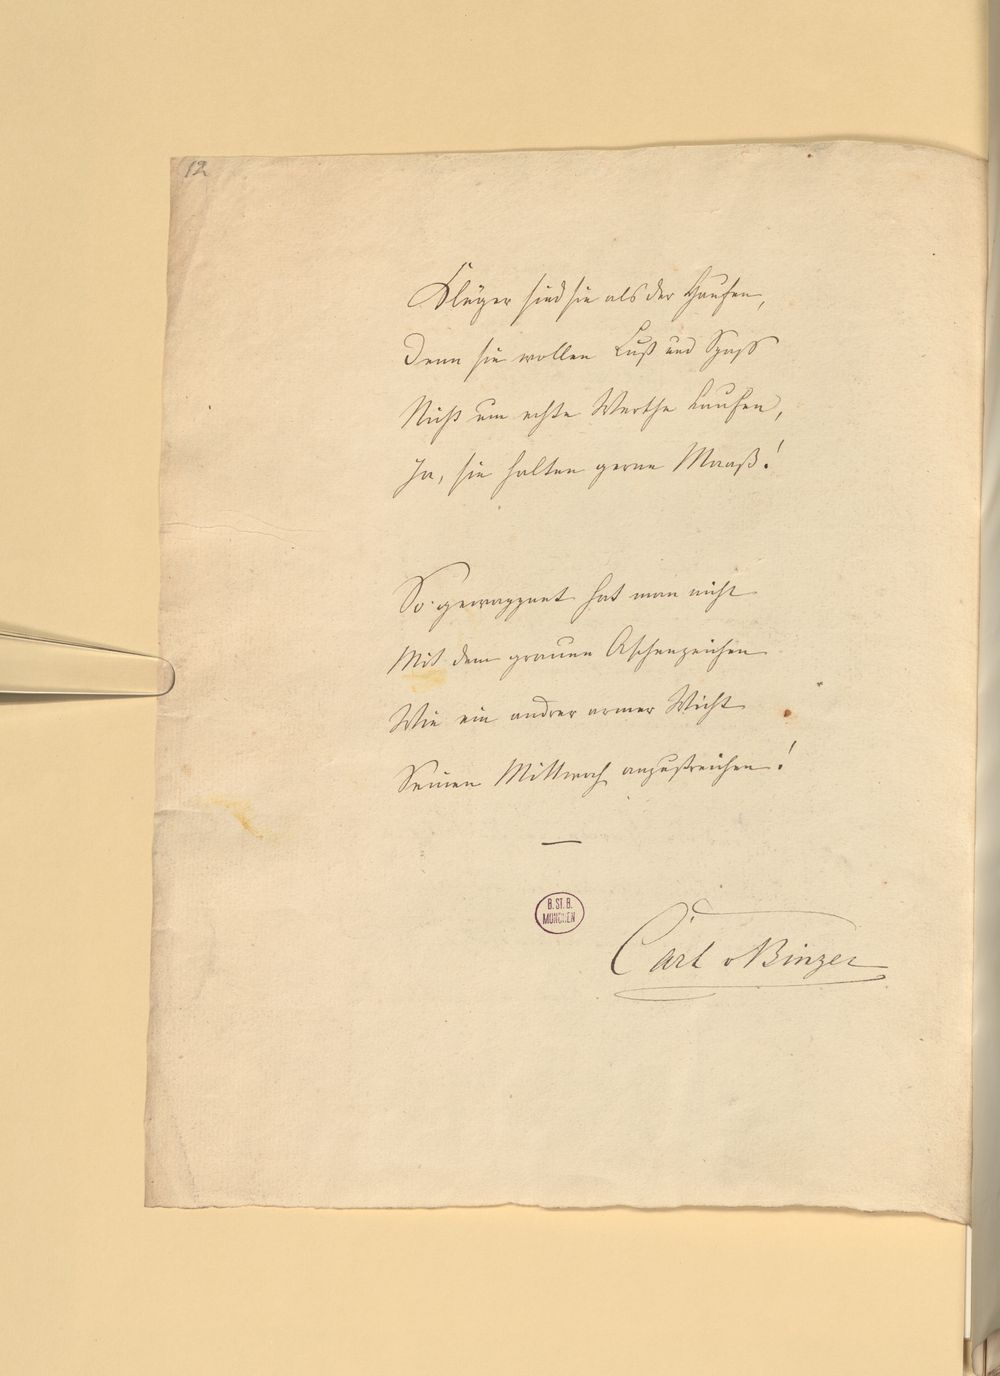 12
Klüger sind sie als der Haufen,
Denn sie wollen Lust und Spaß
Nicht um echte Werthe kaufen,
Ja, sie halten gerne Maaß!
So gewappnet hat man nicht
Mit dem grauen Aschenzeichen
Wie ein andrer armer Wicht
Seinen Mittwoch anzustreichen!
B. ST. B.
MÜNCHEN
Carl v Binzer